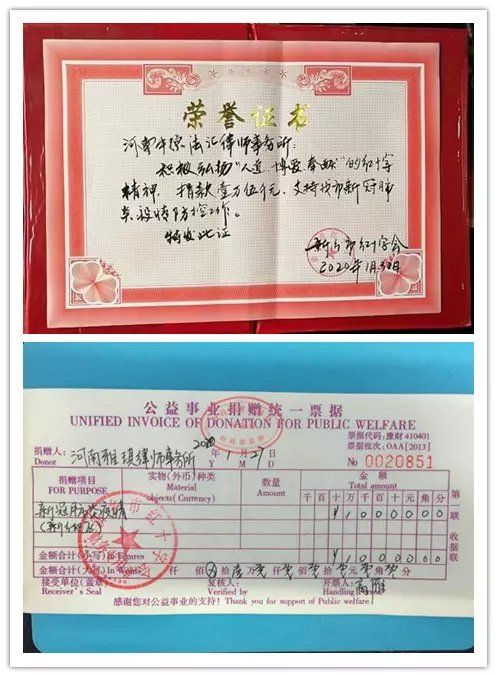 荣誉证书
河南中原法汇律师事务所:
积极弘扬“人道、博爱、奉献”的红十字
精神, 捐款壹万伍仟元、支持我市新冠肺
炎疫情防控工作。
特发此证
新乡市红十字会
2020年1月30日
公益事业捐赠统一票据
UNIFIED INVOICE OF DONATION FOR PUBLIC WELFARE
票据代码:豫财 410401
捐赠人: 河南 律师事务所 2020年1月27日 票据批次:OAA[2013]
Donor Y M D № 0020851
捐赠项目 实物(外币)种类 数量 金额
FOR PURPOSE Material Amount Total amount
objects (Currency) 千百十万千百十元角分
新冠肺炎疫情 ¥1000000
金额合计(小写)In Figures ¥1000000
金额合计(大写)In Words 仟 佰 拾 壹万 仟 佰 拾 元 角 分
接受单位(盖章) 复核人: 开票人:
Receiver's Seal Verified by Handling Person
感谢您对公益事业的支持!Thank you for support of Public welfare!
第一联 收据联